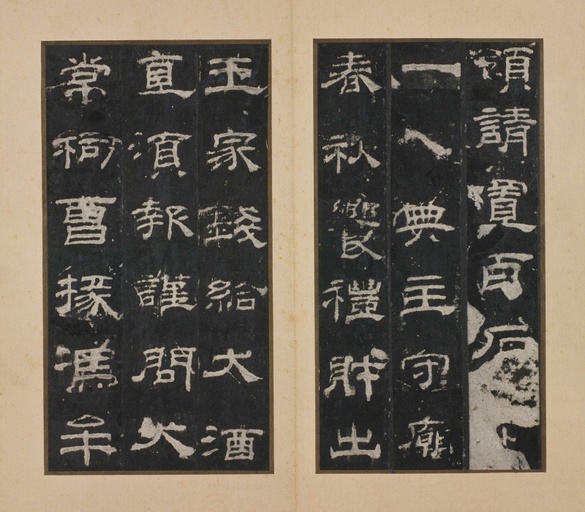 領請置百石
一人典主守廟
春秋饗禮財出
王家錢給大酒
直須報謹問大
常祠曹掾馮牟